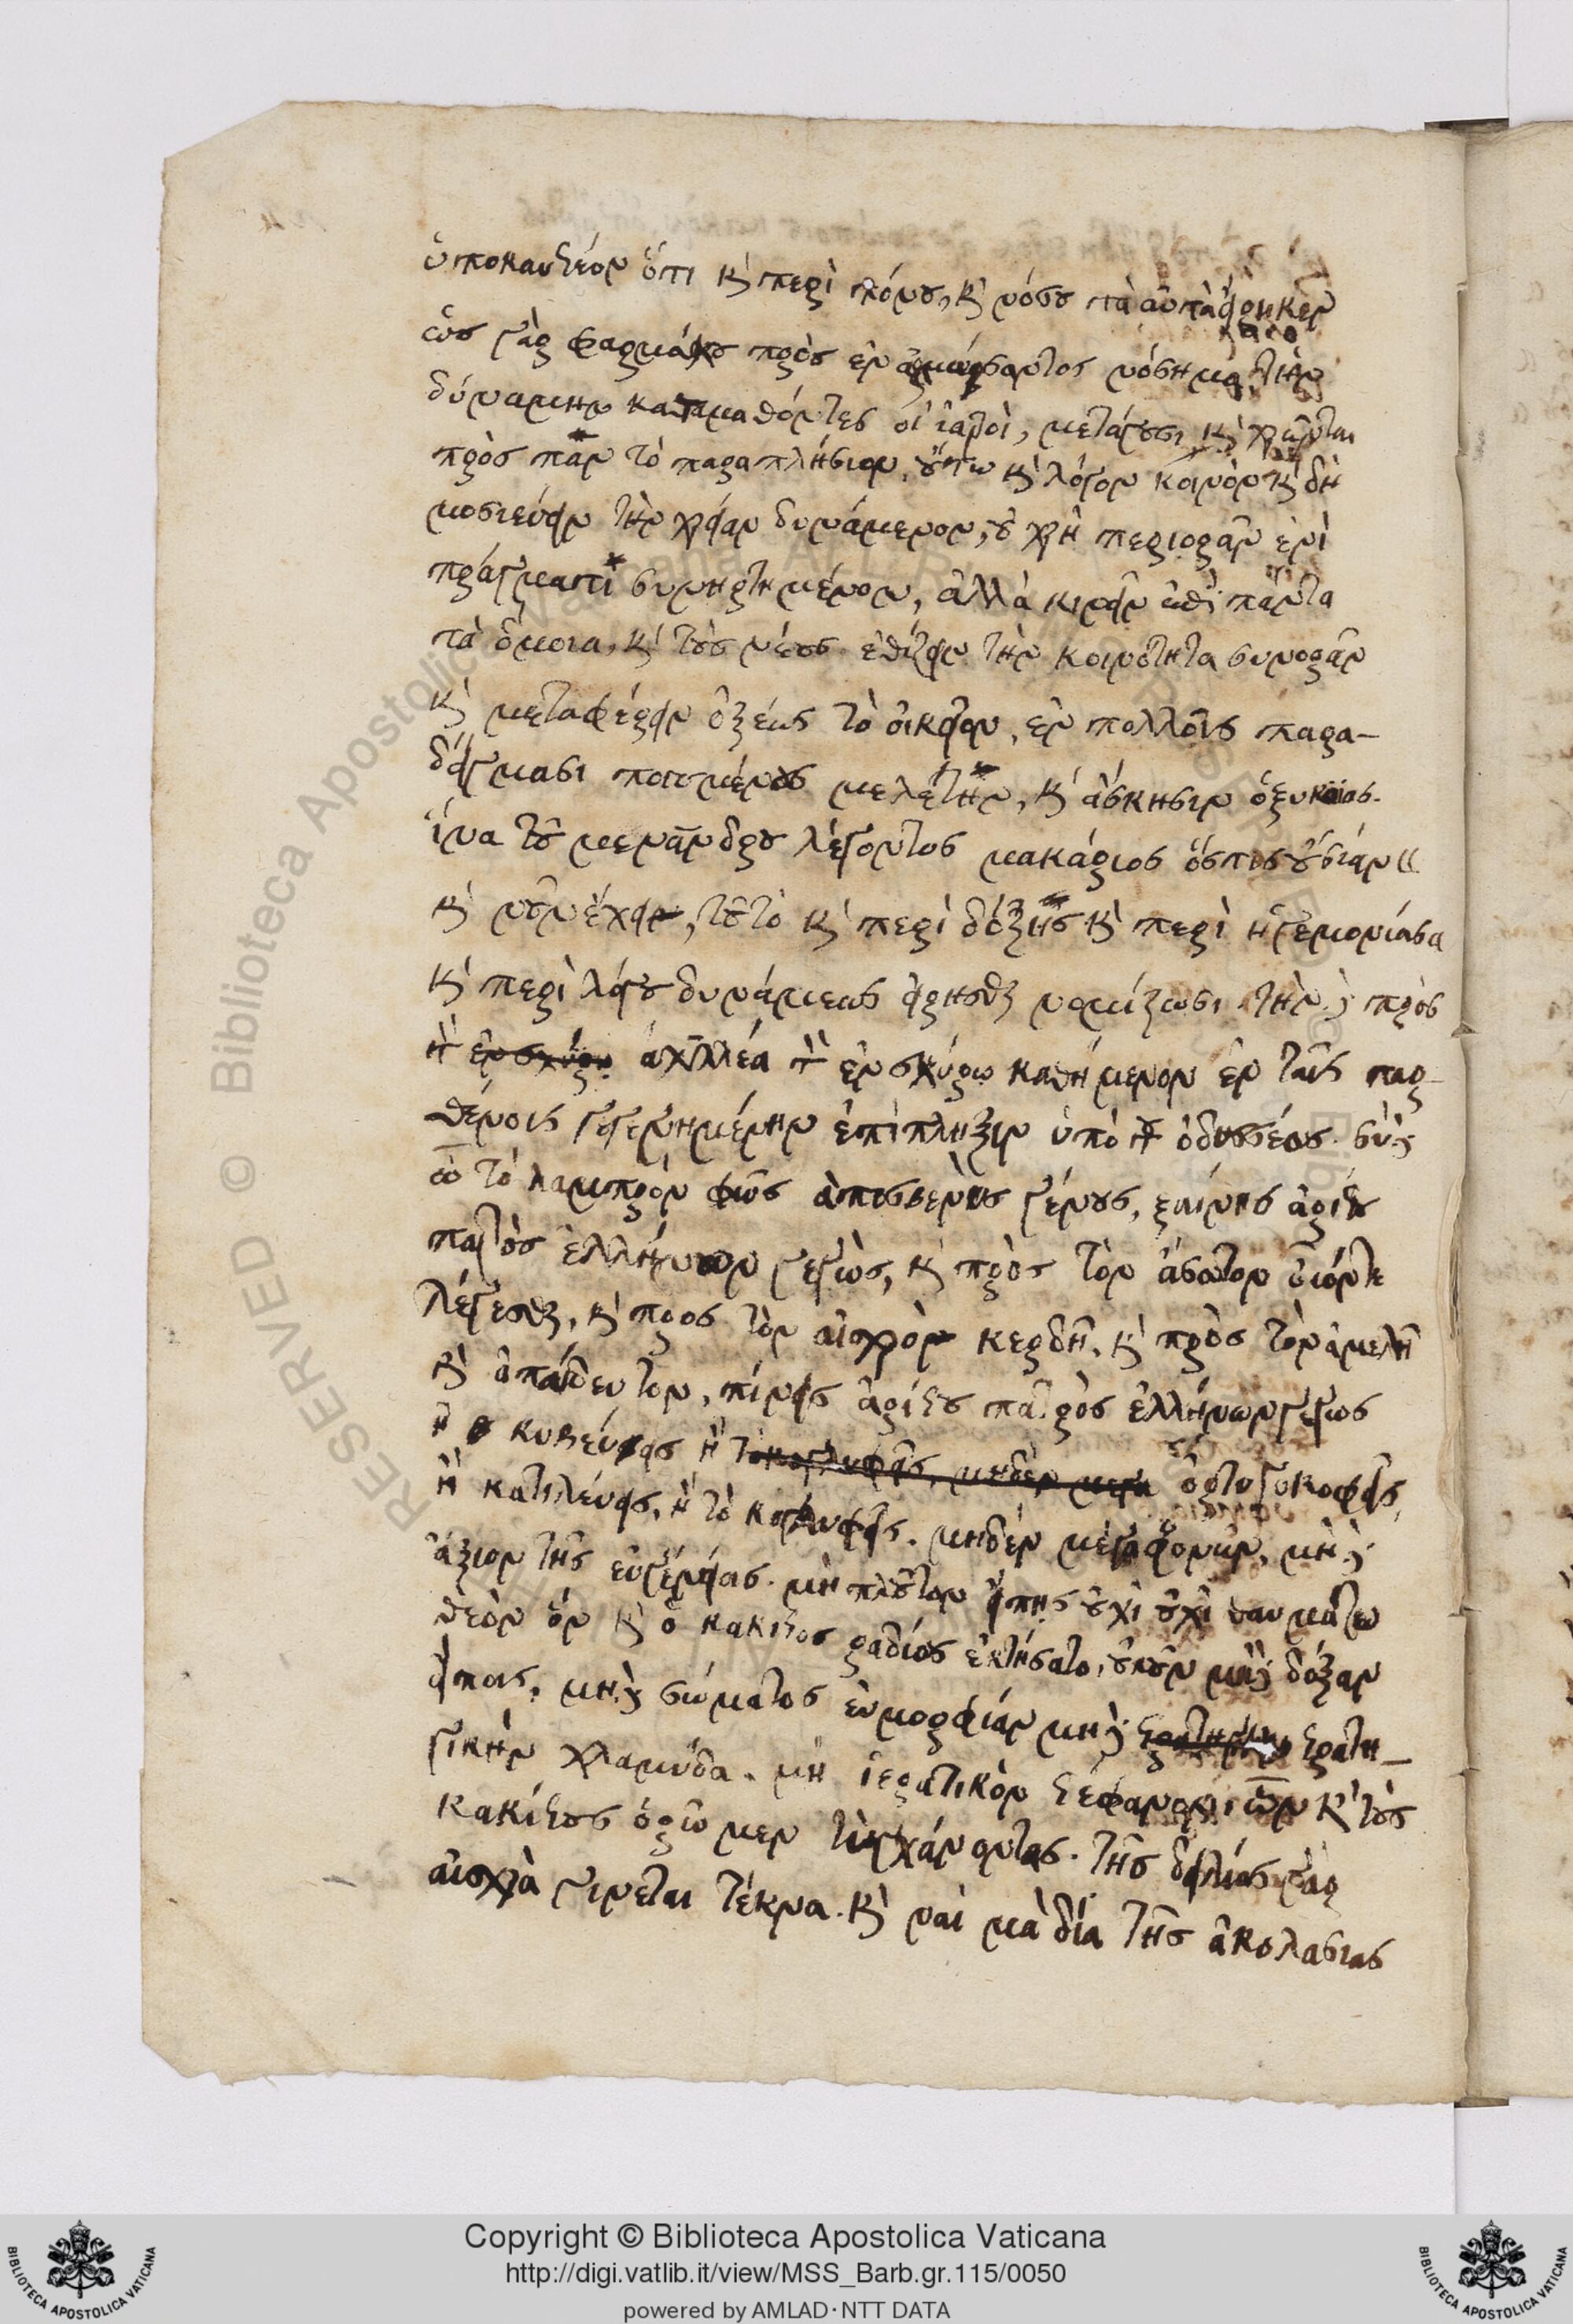 ὑποκουστέον ὅτι κὶ περὶ πόνου, κὶ νόσου τὰ αὐτὰ εἴρηκεν
ὡς γὰρ φαρμάκου πρὸς ἓν ἁρμόσαντος νόσημα τὴν
δύναμιν καταμαθόντες οἱ ἰατροὶ, μετάγουσι κὶ χρῶνται
πρὸς πᾶν τὸ παραπλήσιον, οὕτω κὶ λόγον κοινὸν κὶ δη
μοσιεύειν τὴν χρείαν δυνάμενον, οὐ χρὴ περιορᾶν ἑνὶ
πράγματι συνηρτημένον, ἀλλὰ κινεῖν ἐπὶ πάντα
τὰ ὅμοια, κὶ τοὺς νέους ἐθίζειν τὴν κοινότητα συνορᾶν
κὶ μεταφέρειν ὀξέως τὸ οἰκεῖον, ἐν πολλοῖς παρα-
δείγμασι ποιουμένους μελέτην, κὶ ἄσκησιν ὀξυκοΐας.
ἵνα τοῦ μενάνδρου λέγοντος μακάριος ὅστις οὐσίαν
κὶ νοῦν ἔχει, τοῦτο κὶ περὶ δόξης κὶ περὶ ἡγεμονίας
κὶ περὶ λόγου δυνάμεως εἰρῆσθαι νομίζωσι τὴν δὲ πρὸς
ἀχιλλέα τὸν ἐν σκύρῳ καθήμενον ἐν ταῖς παρ-
θένοις γεγενημένην ἐπίπληξιν ὑπὸ τοῦ ὀδυσσέως. σὺ δ'
ὦ τὸ λαμπρὸν φῶς ἀποσβεννὺς γένους, ξαίνεις ἀρίστου
πατρὸς ἑλλήνων γεγὼς, κὶ πρὸς τὸν ἄσωτον οἰόντε
λέγεσθαι, κὶ προς τὸν αἰσχρὸν κερδῆ, κὶ πρὸς τὸν ἀμελῆ
κὶ ἀπαίδευτον, πίνεις ἀρίστου πατρὸς ἑλλήνων γεγως
ἢ κυβεύεις ἢ ὀρτυγοκοπεῖς,
ἢ καπηλεύεις, ἢ τοκογλυφεῖς. μηδέν μέγα φρονῶν, μὴ δ'
ἄξιον τῆς εὐγενείας. μὴ πλοῦτον εἴπῃς οὐχὶ οὐχὶ θαυμάζω
θεὸν ὃν κὶ ὁ κάκιστος ῥαδίως ἐκτήσατο, οὐκοῦν μὴδὲ δόξαν
εἴποις, μηδὲ σώματος εὐμορφίαν μηδὲ στρατη-
γικὴν χλαμύδα. μὴ ἱερατικὸν στέφανον, ὧν κὶ τοὺς
κακίστους ὁρῶ μεν τυγχάνοντας. τῆς δειλίας γὰρ
αἰσχρὰ γινεται τέκνα. κὶ ναὶ μὰ δία τῆς ἀκολασιας
Copyright © Biblioteca Apostolica Vaticana
http://digi.vatlib.it/view/MSS_Barb.gr.115/0050
powered by AMLAD·NTT DATA